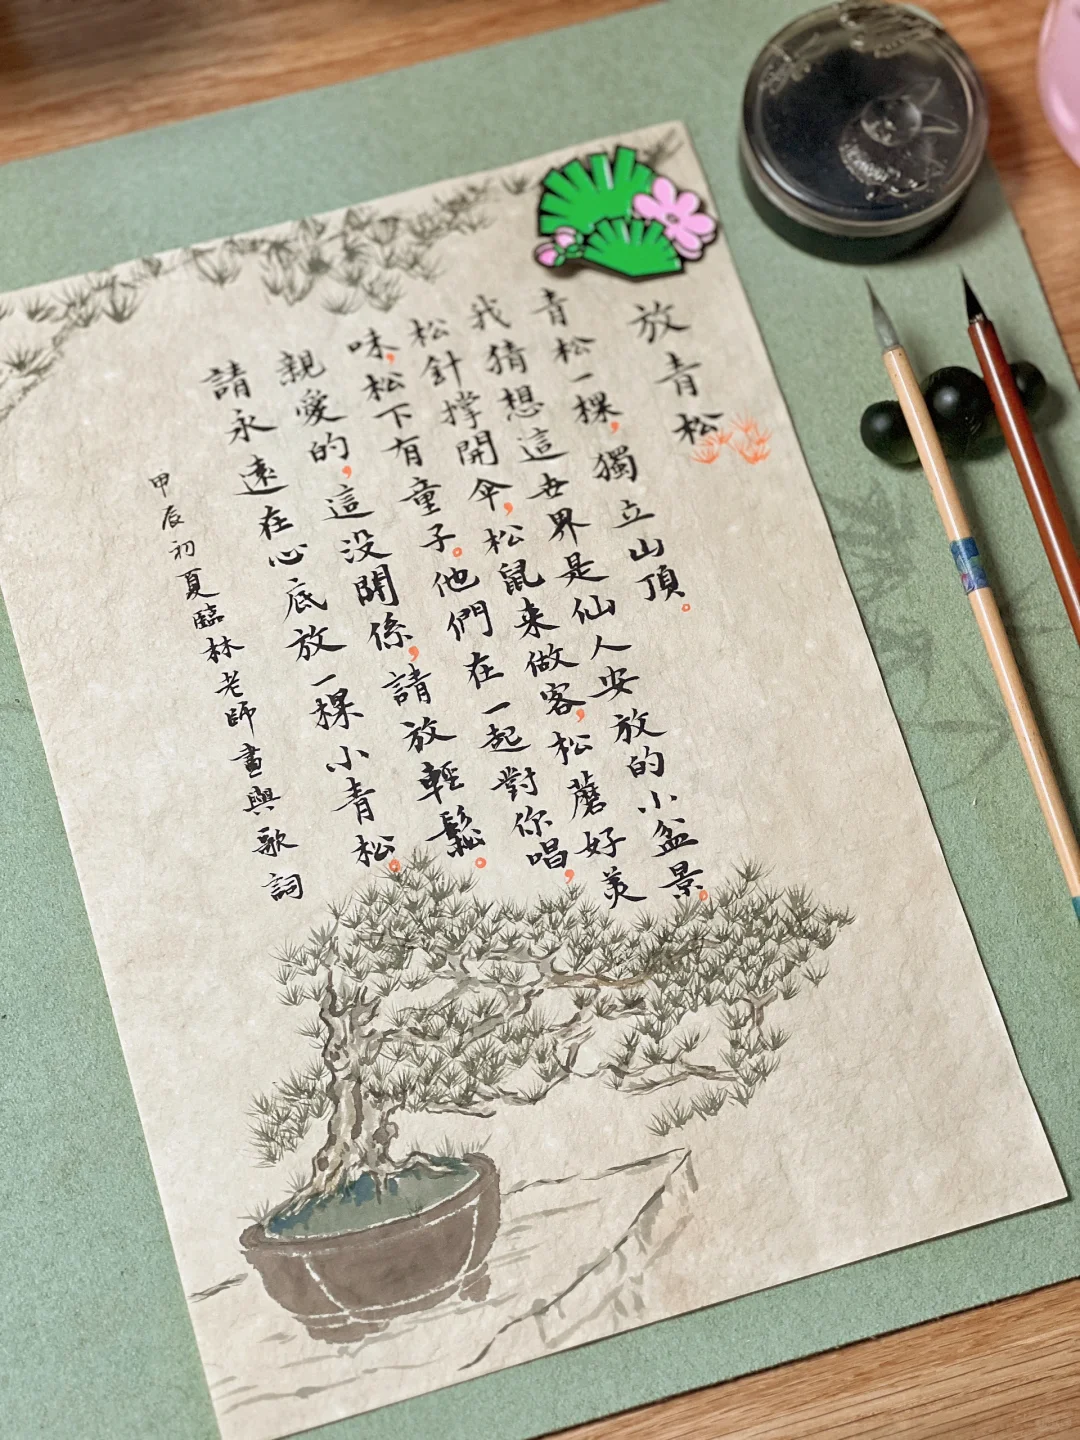 放青松
青松一棵,獨立山頂。
我猜想這世界是仙人安放的小盆景。
松針撑開傘,松鼠来做客,松蘑好美
味,松下有童子。他們在一起對你唱,
親愛的,這没関係,請放輕鬆。
請永遠在心底放一棵小青松。
甲辰初夏臨林老師畫與歌詞